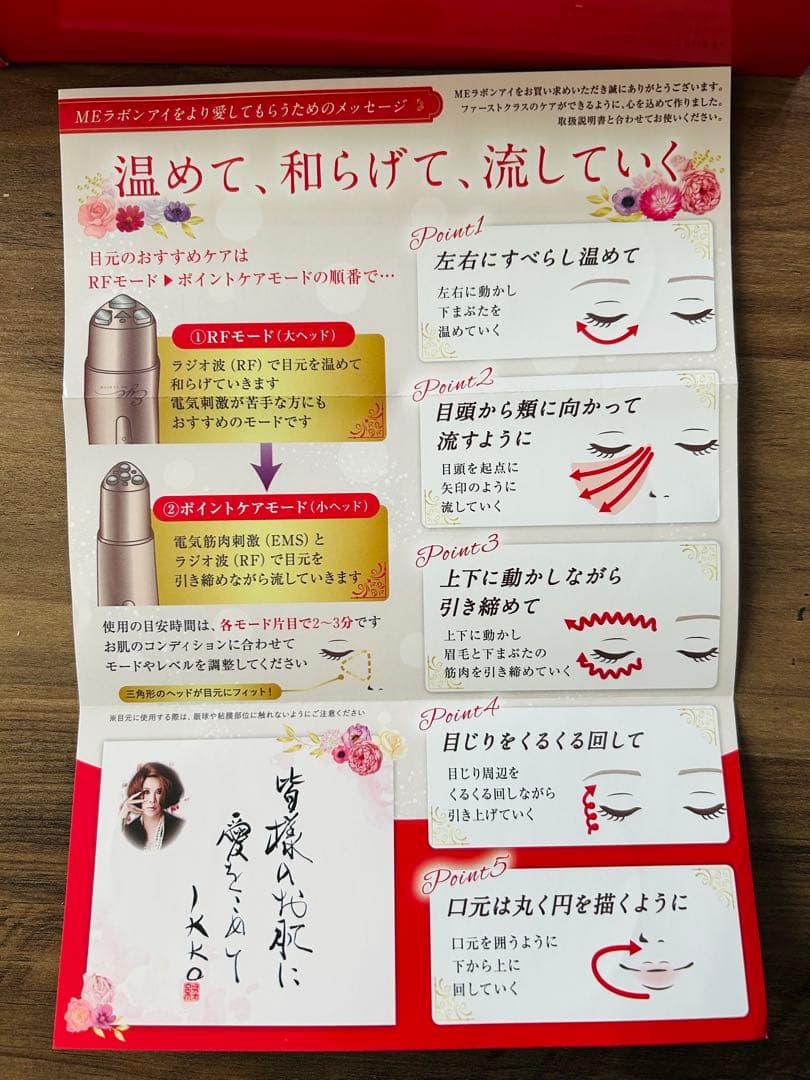 MEラボンアイをより愛してもらうためのメッセージ
MEラボンアイをお買い求めいただき誠にありがとうございます。
ファーストクラスのケアができるように、心を込めて作りました。
取扱説明書と合わせてお使いください。
温めて、和らげて、流していく
目元のおすすめケアは
RFモード▶ポイントケアモードの順番で…
①RFモード(大ヘッド)
ラジオ波(RF)で目元を温めて
和らげていきます
電気刺激が苦手な方にも
おすすめのモードです
Eye
②ポイントケアモード(小ヘッド)
電気筋肉刺激(EMS)と
ラジオ波(RF)で目元を
引き締めながら流していきます
使用の目安時間は、各モード片目で2〜3分です
お肌のコンディションに合わせて
モードやレベルを調整してください
三角形のヘッドが目元にフィット!
※目元に使用する際は、眼球や粘膜部位に触れないようにご注意ください
皆様のお肌に
愛をこめて
IKKO
Point1
左右にすべらし温めて
左右に動かし
下まぶたを
温めていく
Point2
目頭から頬に向かって
流すように
目頭を起点に
矢印のように
流していく
Point3
上下に動かしながら
引き締めて
上下に動かし
眉毛と下まぶたの
筋肉を引き締めていく
Point4
目じりをくるくる回して
目じり周辺を
くるくる回しながら
引き上げていく
Point5
口元は丸く円を描くように
口元を囲うように
下から上に
回していく